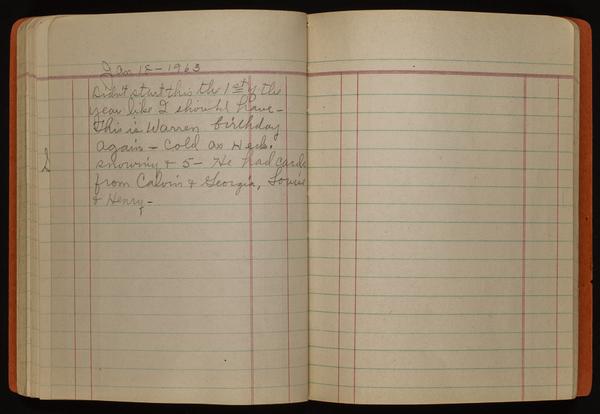 Jan 18 - 1963
Didn't start this the 1st of the
year like I should have -
This is Warren birthday
again - Cold as Heck.
snowing & 5 - He had cards
from Calvin & Georgia, Louise
& Henry -